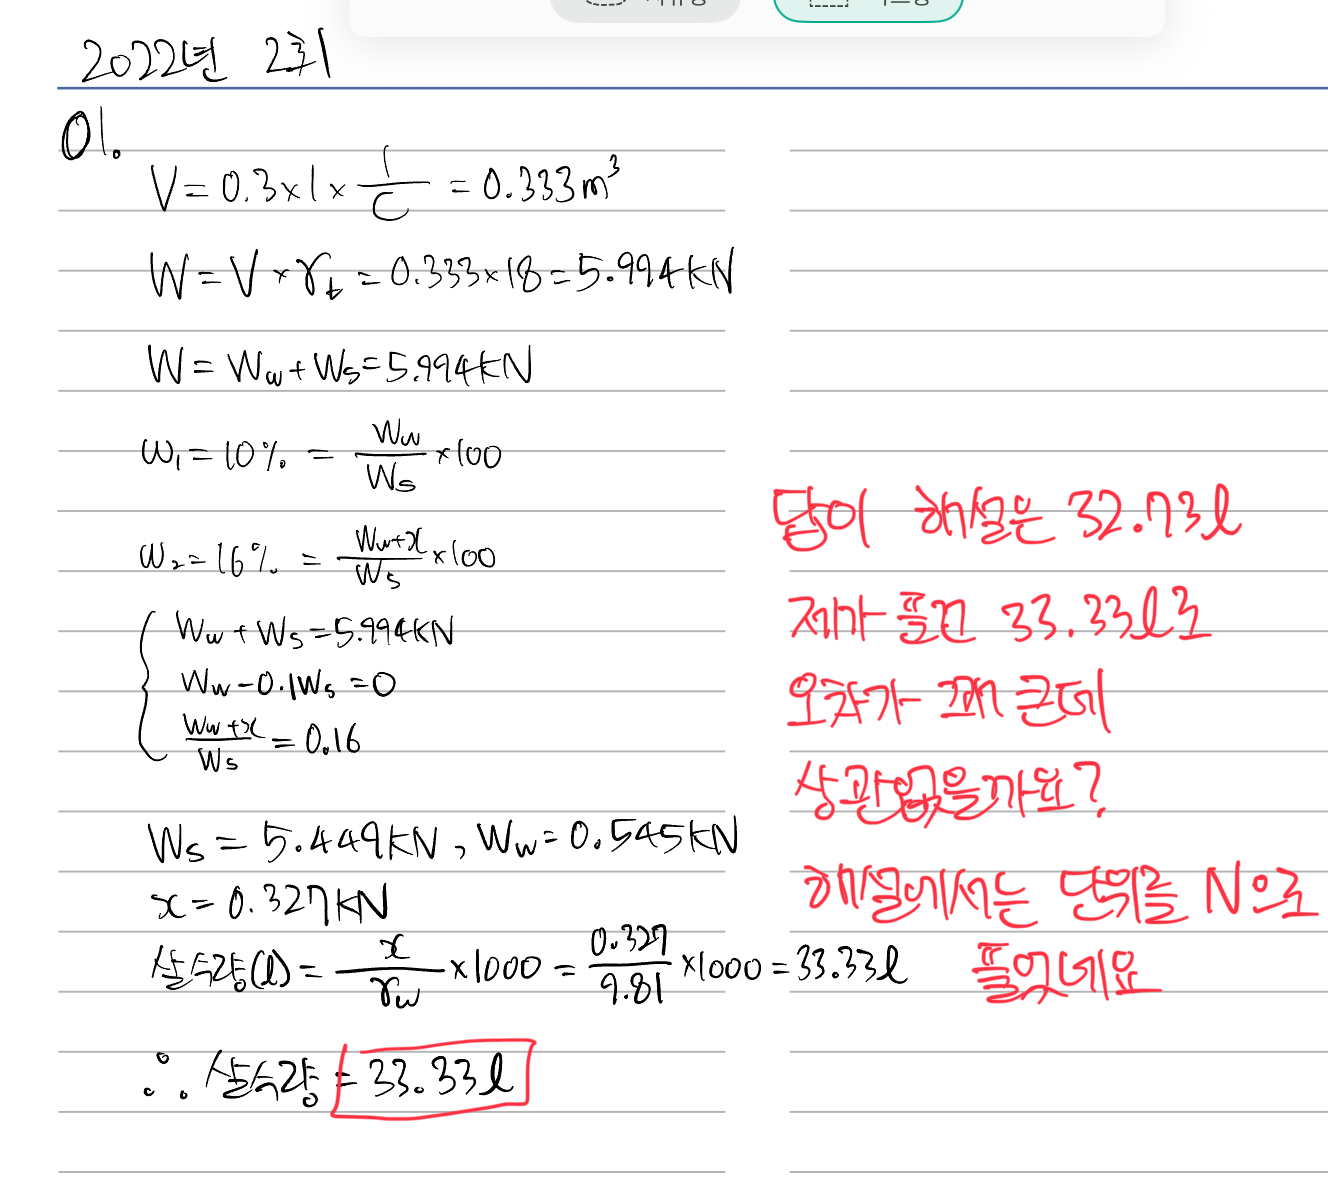 2022년 2회
01.
V = 0.3 × 1 × 1/C = 0.333m³
W = V × γt = 0.333 × 18 = 5.994kN
W = Ww + Ws = 5.994kN
ω₁ = 10% = Ww/Ws × 100
ω₂ = 16% = Ww+x/Ws × 100
Ww + Ws = 5.994kN
Ww - 0.1Ws = 0
Ww+x/Ws = 0.16
Ws = 5.449kN, Ww = 0.545kN
x = 0.327kN
살수량(l) = x/γw × 1000 = 0.327/9.81 × 1000 = 33.33l
∴ 살수량 = 33.33l
답이 해설은 32.73l
제가 푼건 33.33l로
오차가 꽤 큰데
상관없을까요?
해설에서는 단위를 N으로
풀었네요